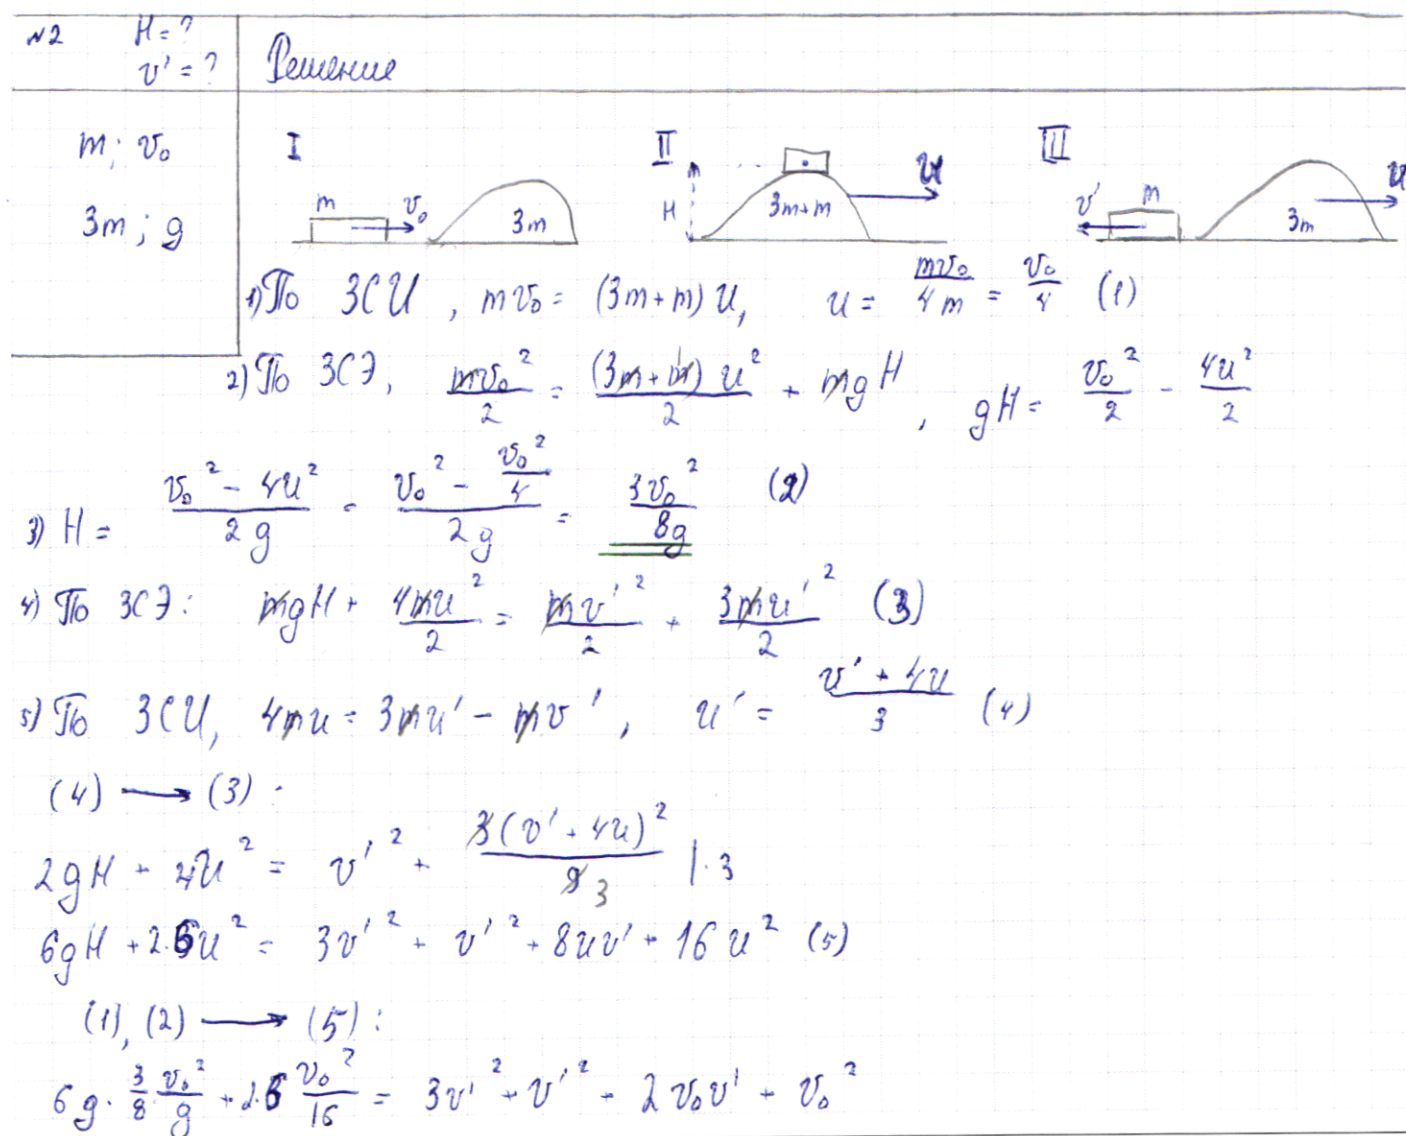 №2 H = ?
v' = ?
Решение
m; v₀
3m; g
I
m v₀ 3m
II
H 3m+m U
III
v' m 3m U
1) По ЗСИ, mv₀ = (3m+m) U, u = mv₀/4m = v₀/4 (1)
2) По ЗСЭ, mv₀²/2 = (3m+m)u²/2 + mgH, gH = v₀²/2 - 4u²/2
3) H = (v₀² - 4u²)/2g = (v₀² - v₀²/4)/2g = 3v₀²/8g (2)
4) По ЗСЭ: mgH + 4mu²/2 = mv'²/2 + 3mu'²/2 (3)
5) По ЗСИ, 4mu = 3mu' - mv', u' = (v' + 4u)/3 (4)
(4) → (3):
2gH + 4U² = v'² + 3(v' + 4u)²/9 3 |·3
6gH + 2·6u² = 3v'² + v'² + 8uv' + 16u² (5)
(1), (2) → (5):
6g · 3/8 v₀²/g + 2·6 v₀²/16 = 3v'² + v'² + 2v₀v' + v₀²